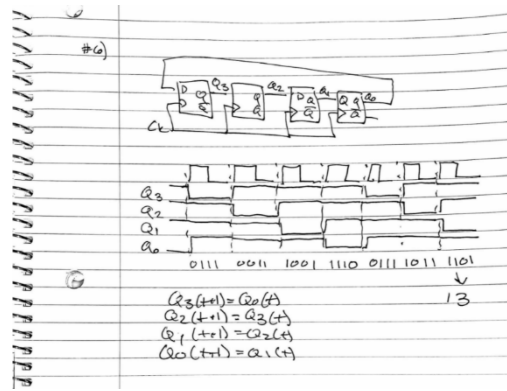 #6)
Q3 Q2 Q1 Q0
D Q Q Q D Q Q Q
Q̅ Q̅ Q̅
Ck
Q3
Q2
Q1
Q0
0111 0011 1001 1110 0111 1011 1101
↓
13
Q3(t+1)=Q0(t)
Q2(t+1)=Q3(t)
Q1(t+1)=Q2(t)
Q0(t+1)=Q1(t)